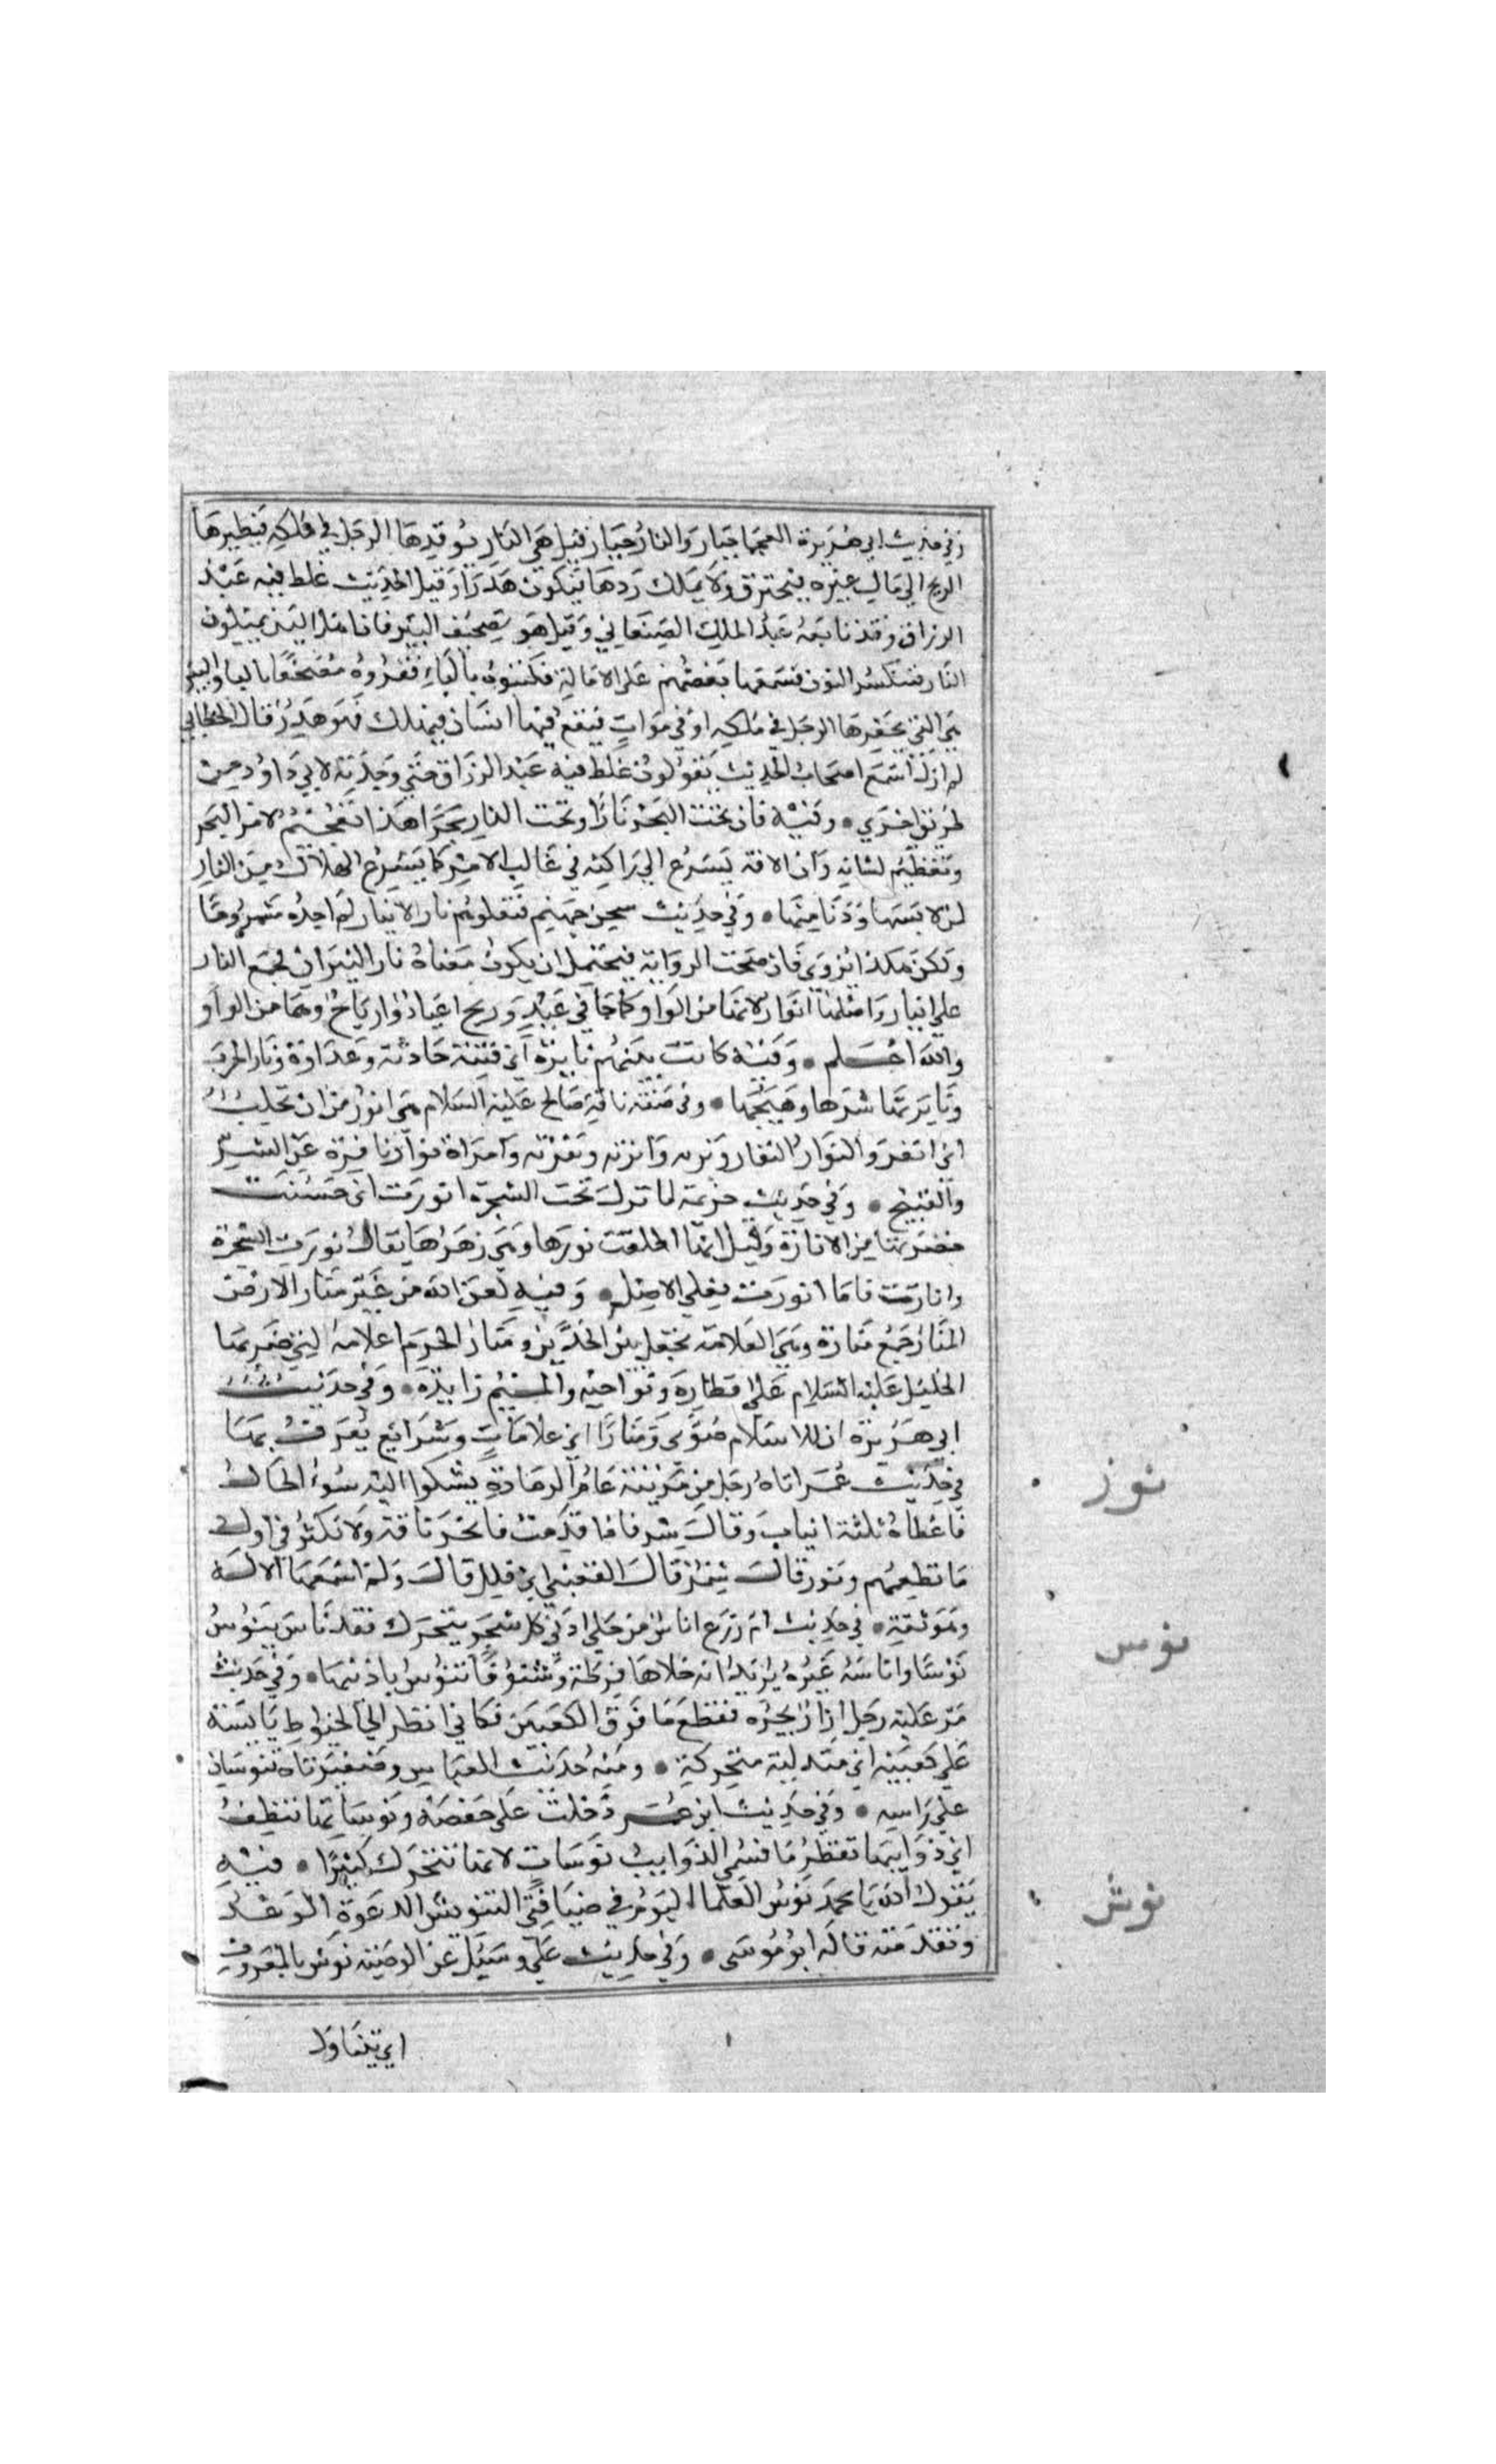 وفي حديث ابي هريرة العجما جبار والنار جبار قيل هي النار يوقدها الرجل في ملكه فيطيرها
الريح الي مال غيره فيحترق ولا يملك ردها فيكون هدرا وقيل الحديث غلط فيه عبد
الرزاق وقد تابعه عبد الملك الصنعاني وقيل هو تصحيف البير فان اهل اليمن يميلون
النار فتنكسر النون فسمعها بعضهم علي الامالة فكتبوه بالياء فقروه مصحفا بالبا والبير
هي التي يحفرها الرجل في ملكه او في موات فيقع فيها انسان فيهلك فهو هدر قال الخطابي
لم ازل اسمع اصحاب الحديث يقولون غلط فيه عبد الرزاق حتي وجدته لابي داود من
طريق اخري • وفيه فان تحت البحر نارا وتحت النار بحرا هذا تفخيم لامر البحر
وتعظيم لشانه وان الافة يسرع الي راكبه في غالب الامر كما يسرع الهلاك من النار
لمن لابسها ودنا منها • وفي حديث سجن جهنم فتعلوهم نار الانيار لم اجده مشروحا
ولكن هكذا يروي فان صحت الرواية فيحتمل ان يكون معناه نار النيران فجمع النار
علي انيار واصلها انوار لانها من الواو كما جا في عيد وريح اعياد وارياح وهما من الواو
والله اعلم • وفيه كانت بينهم نايرة اي فتنة حادثة وعداوة ونار الحرب
ونايرتها شرها وهيجها • وفي صفة ناقة صالح عليه السلام هي انور من ان تحلب
اي انفر والنوار النفار ونرته وانرته ونفرته وامراة نوار نافرة عن الشر
والقبيح • وفي حديث خزيمة لما نزل تحت الشجرة انورت اي حسنت
خضرتها من الانارة وقيل انها اطلعت نورها وهي زهرها يقال نورت الشجرة
وانارت فاما انورت فعلي الاصل • وفيه لعن الله من غير منار الارض
المنار جمع منارة وهي العلامة تجعل بين الحدين ومنار الحرم اعلامه التي ضربها
الخليل عليه السلام علي اقطاره ونواحيه والميم زايدة • وفي حديث
ابي هريرة ان للاسلام صوي ومنارا اي علامات وشرايع يعرف بها
في حديث عمر اتاه رجل من مزينة عام الرمادة يشكوا اليه سوء الحال
فاعطاه ثلثة انياب وقال سر فاذا قدمت فانحر ناقة ولا تكثر في اول
ما تطعمهم ونوز قال شمر قال القعنبي اي قلل قال ولم اسمعها الا له
وهو ثقة • في حديث ام زرع اناس من حلي اذني كل شيء يتحرك فقد ناس ينوس
نوسا واناسه غيره يريد انه حلاها قرطة وشنوفا تنوس باذنيها • وفي حديث
مر عليه رجل ازار يجره فقطع ما فوق الكعبين فكاني انظر الي الخيوط نايسة
علي كعبيه اي متدلية متحركة • ومنه حديث العباس وضفيرتاه تنوسان
علي راسه • وفي حديث ابن عمر دخلت علي حفصة ونوساتها تنطف
اي ذوايبها تقطر ما فسمي الذوايب نوسات لانها تتحرك كثيرا • فيه
يقول الله يا محمد نوش العلما اليوم في ضيافتي التنويش للدعوة الوعد
وتقدمته قاله ابو موسى • وفي حديث علي وسئل عن الوصية نوش بالمعروف
نوز
نوس
نوش
اي يتناول